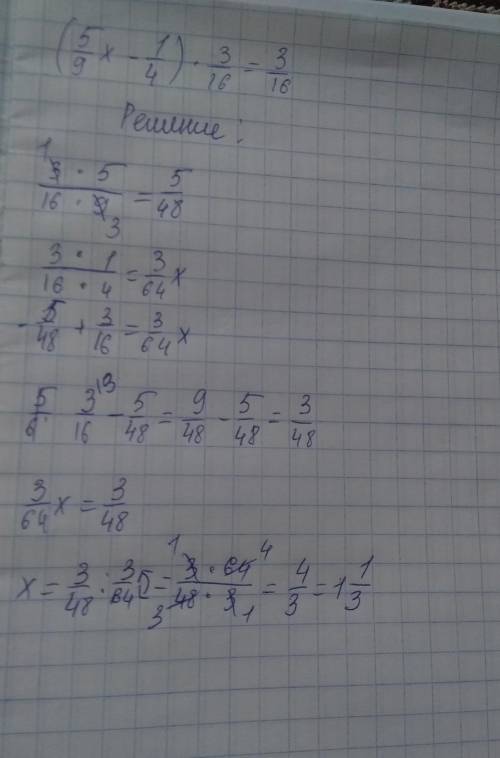 (5/9 x - 1/4) · 3/16 = 3/16
Решение:
(3 · 5)/(16 · 9) = 5/48
1 3
(3 · 1)/(16 · 4) = 3/64 x
- 5/48 + 3/16 = 3/64 x
5/6 3/16 - 5/48 = 9/48 - 5/48 = 3/48
3/64 x = 3/48
x = 3/48 : 3/64 = (3 · 64)/(48 · 3) = 4/3 = 1 1/3
1 4 3 1